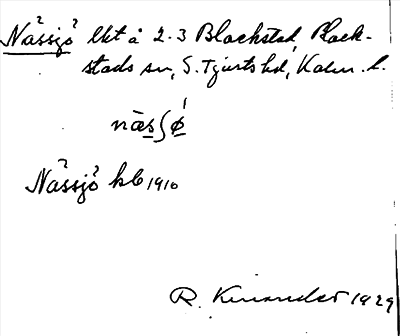 Nässjö lht å 2.3 Blackstad, Black-
stads sn, S. Tjusts hd, Kalm. l.
næsʃø
Nässjö kb 1910
R. Kinander 1929